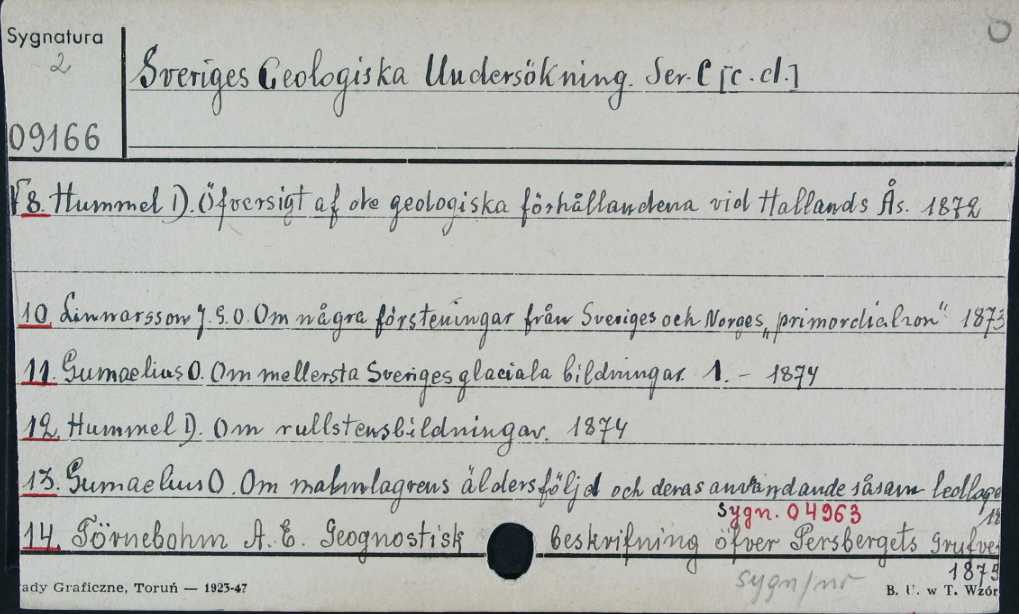 Sygnatura
2
09166
Sveriges Geologiska Undersökning. Ser. C [c. d.]
8. Hummel D. Öfversigt af de geologiska förhållandena vid Hallands Ås. 1872
10. Linnarsson J. G. O. Om några försteningar från Sveriges och Norges „primordialzon" 1873
11. Gumaelius O. Om mellersta Sveriges glaciala bildningar. 1. – 1874
12. Hummel D. Om rullstensbildningar. 1874
13. Gumaelius O. Om malmlagrens åldersföljd och deras användande såsom ledlage
Sygn. 04963
18
14. Törnebohm A. E. Geognostisk beskrifning öfver Persbergets Grufve
1875
sygn/nr
ady Graficzne, Toruń — 1923-47
B. U. w T. Wzór